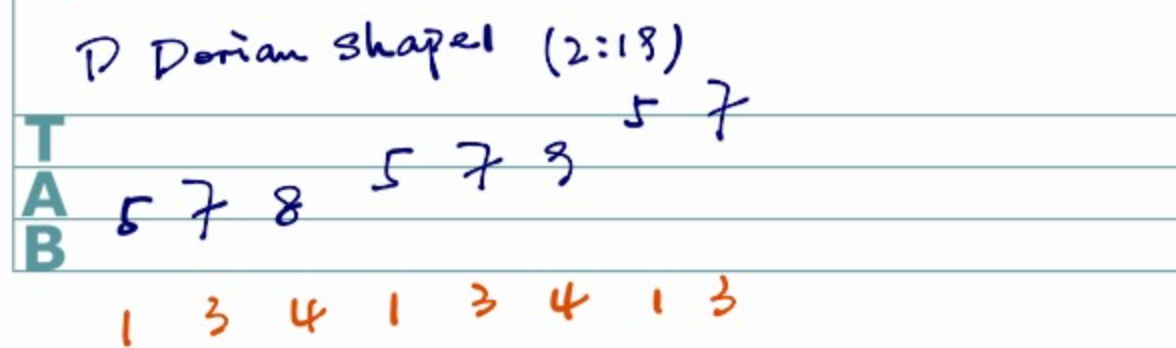 D Dorian shape1 (2:18)
5 7
5 7 9
5 7 8
TAB
1 3 4 1 3 4 1 3